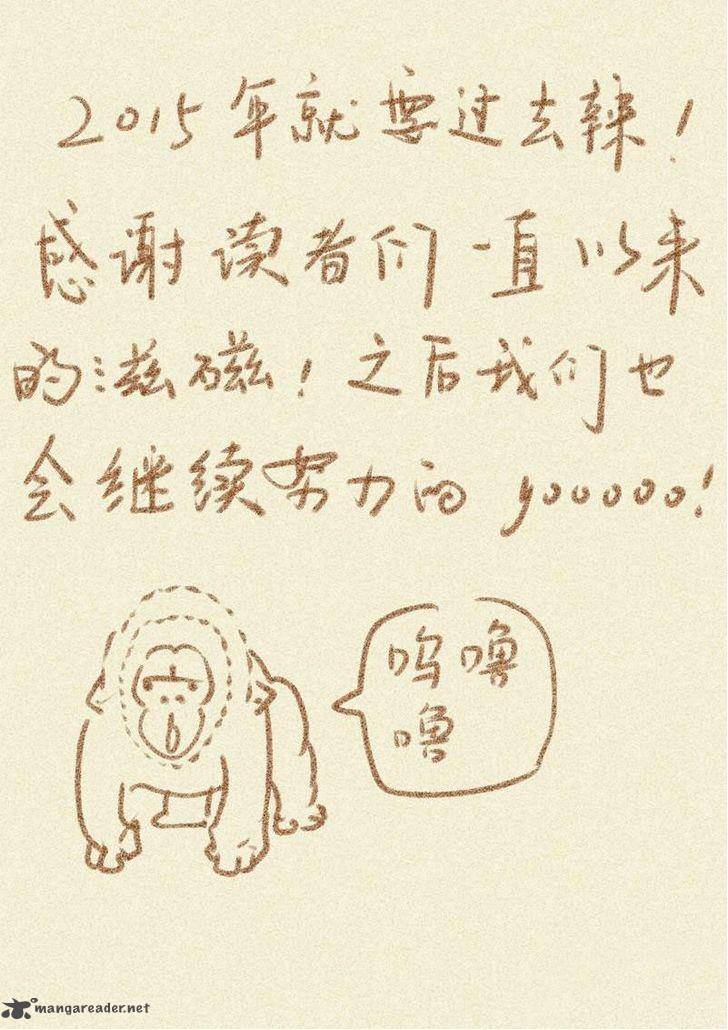 2015年就要过去辣!
感谢读者们一直以来
的滋磁!之后我们也
会继续努力的yooooo!
呜噜
噜
mangareader.net